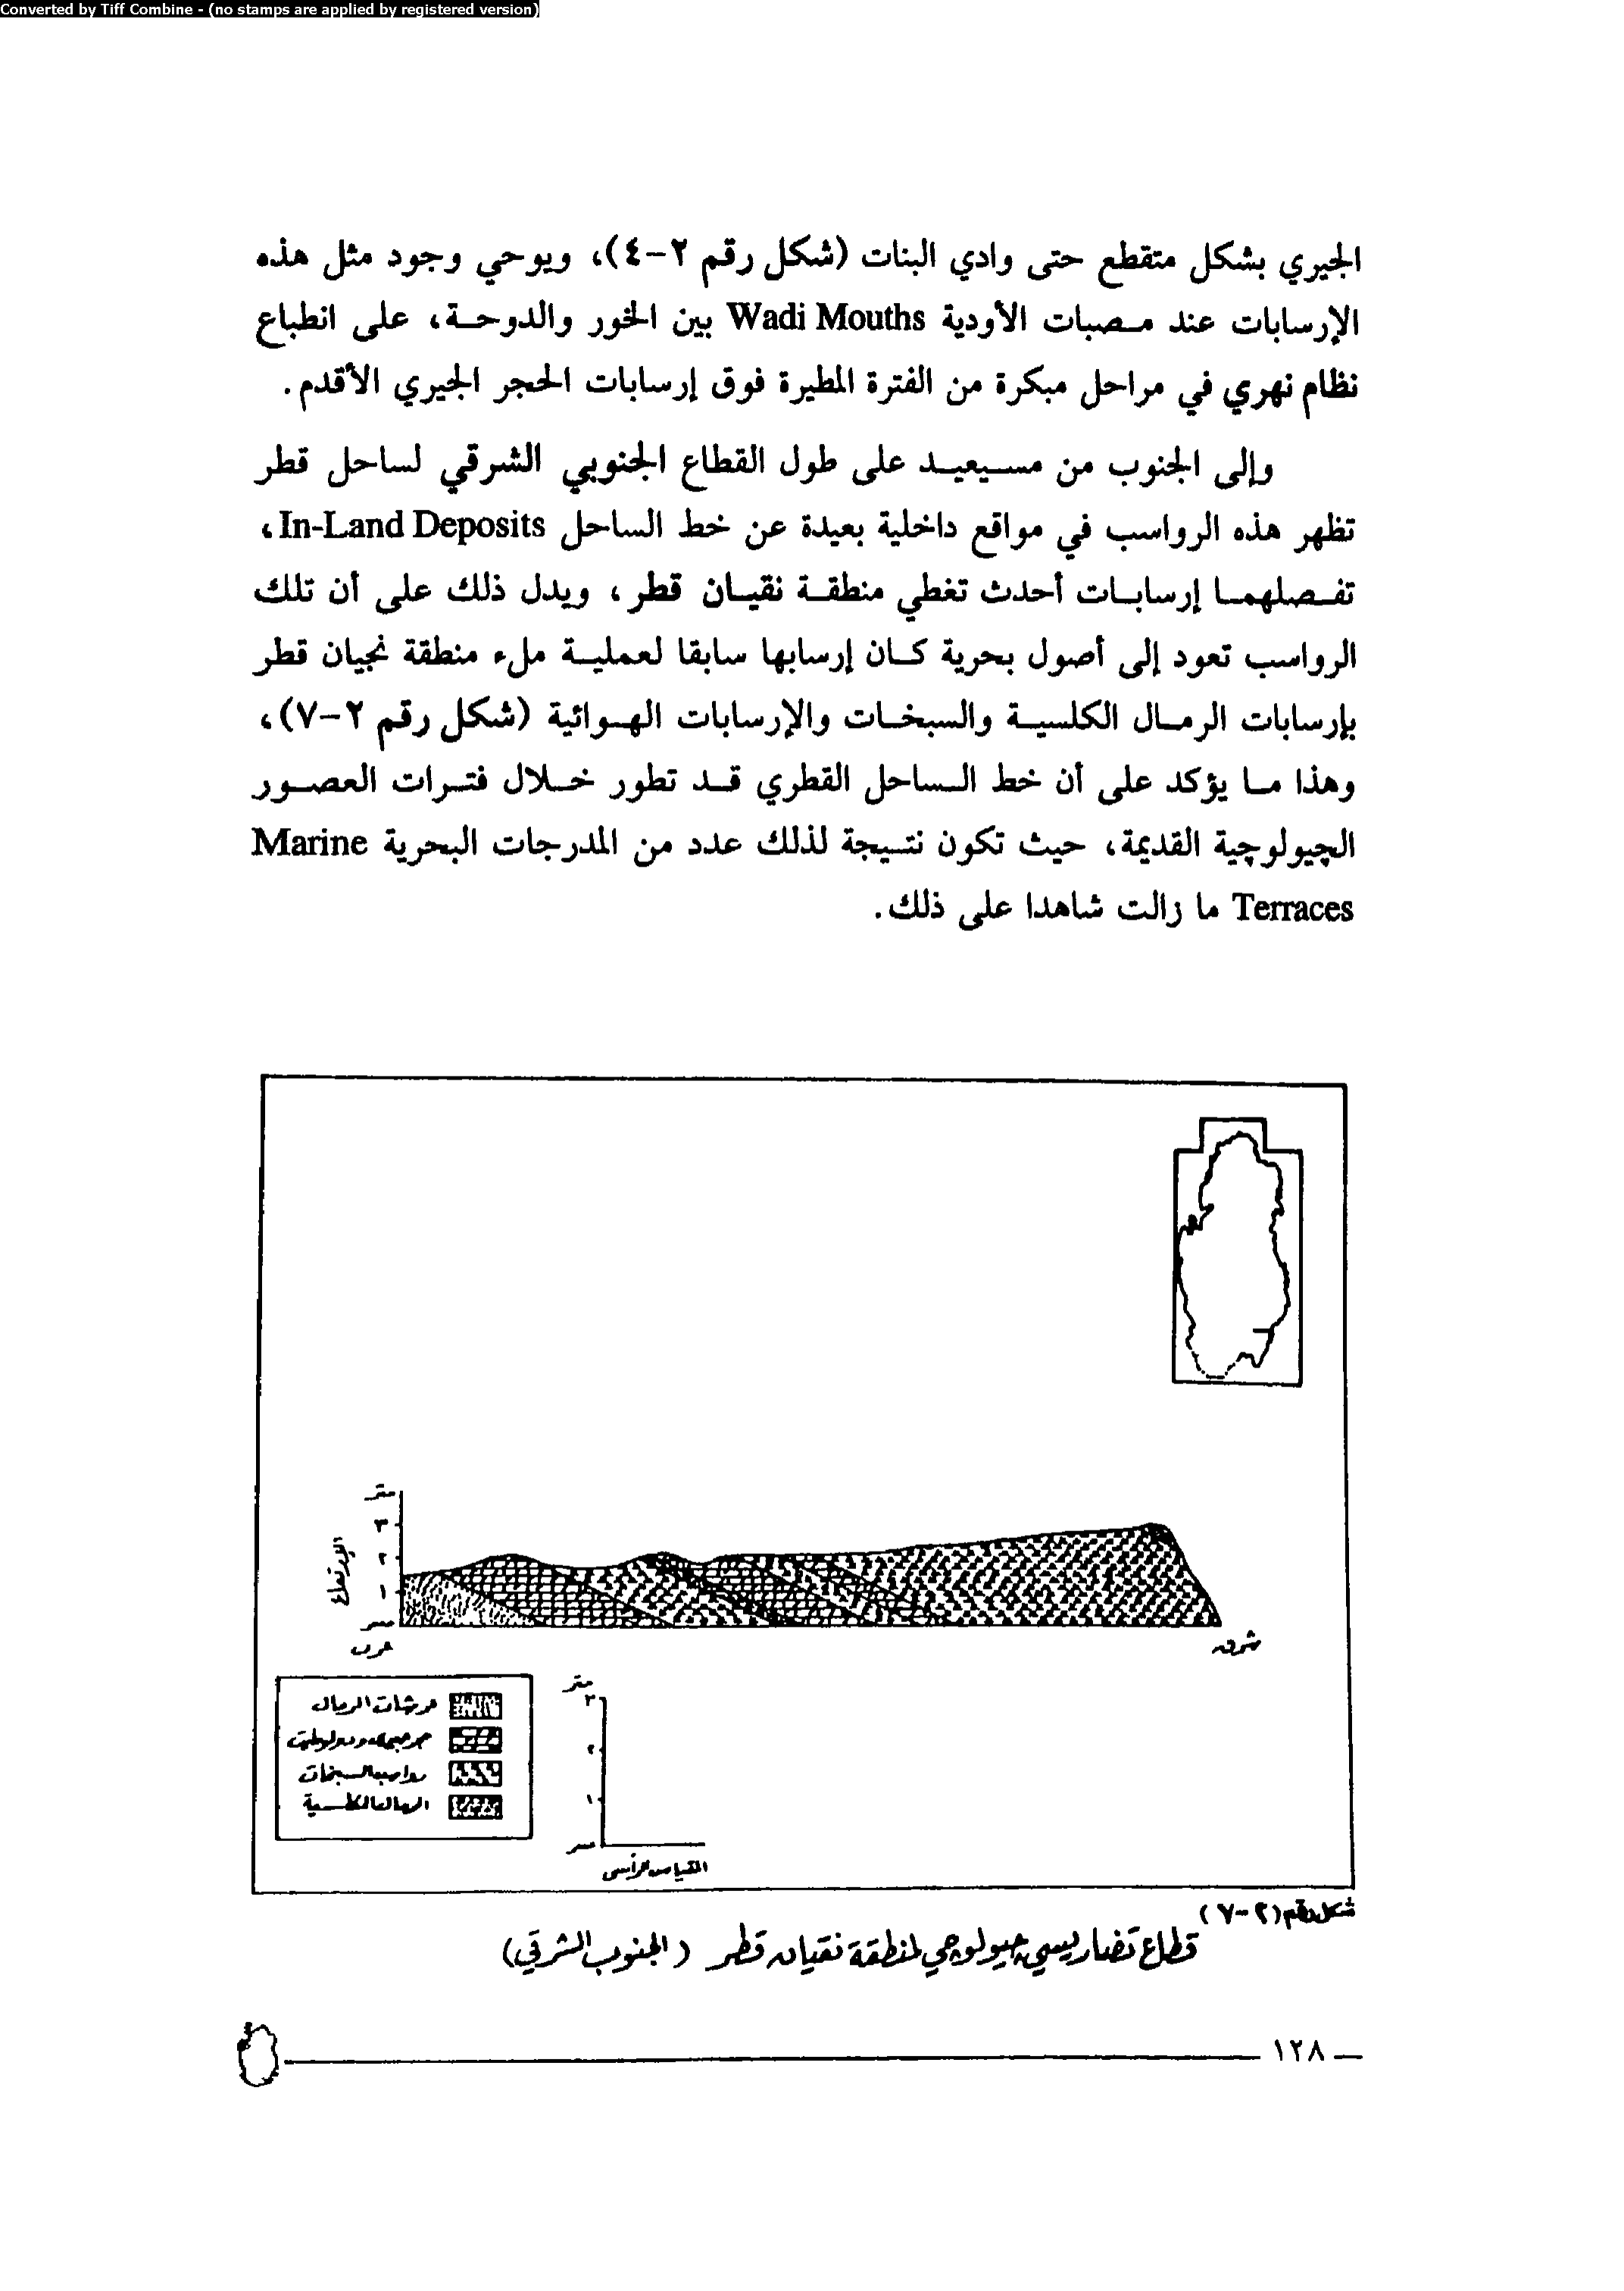 Converted by Tiff Combine - (no stamps are applied by registered version)
الجيري بشكل متقطع حتى وادي البنات (شكل رقم ٢-٤)، ويوحي وجود مثل هذه
الإرسابات عند مصبات الأودية Wadi Mouths بين الخور والدوحة، على انطباع
نظام نهري في مراحل مبكرة من الفترة المطيرة فوق إرسابات الحجر الجيري الأقدم.
وإلى الجنوب من مسيعيد على طول القطاع الجنوبي الشرقي لساحل قطر
تظهر هذه الرواسب في مواقع داخلية بعيدة عن خط الساحل In-Land Deposits،
تفصلهما إرسابات أحدث تغطي منطقة نقيان قطر، ويدل ذلك على أن تلك
الرواسب تعود إلى أصول بحرية كان إرسابها سابقا لعملية ملء منطقة نجيان قطر
بإرسابات الرمال الكلسية والسبخات والإرسابات الهوائية (شكل رقم ٢-٧)،
وهذا ما يؤكد على أن خط الساحل القطري قد تطور خلال فترات العصور
الچيولوچية القديمة، حيث تكون نتيجة لذلك عدد من المدرجات البحرية Marine
Terraces ما زالت شاهدا على ذلك.
متر
٣
٢
١
صفر
الإرتفاع
غرب
شرق
فرشات الرمال
رواسب السبخات
الرمال الكلسية
متر
٣
٢
١
صفر
المقياس الرأسى
شكل رقم (٢-٧)
قطاع تضاريسي چيولوچي لمنطقة نقيان قطر (الجنوب الشرقي)
١٢٨